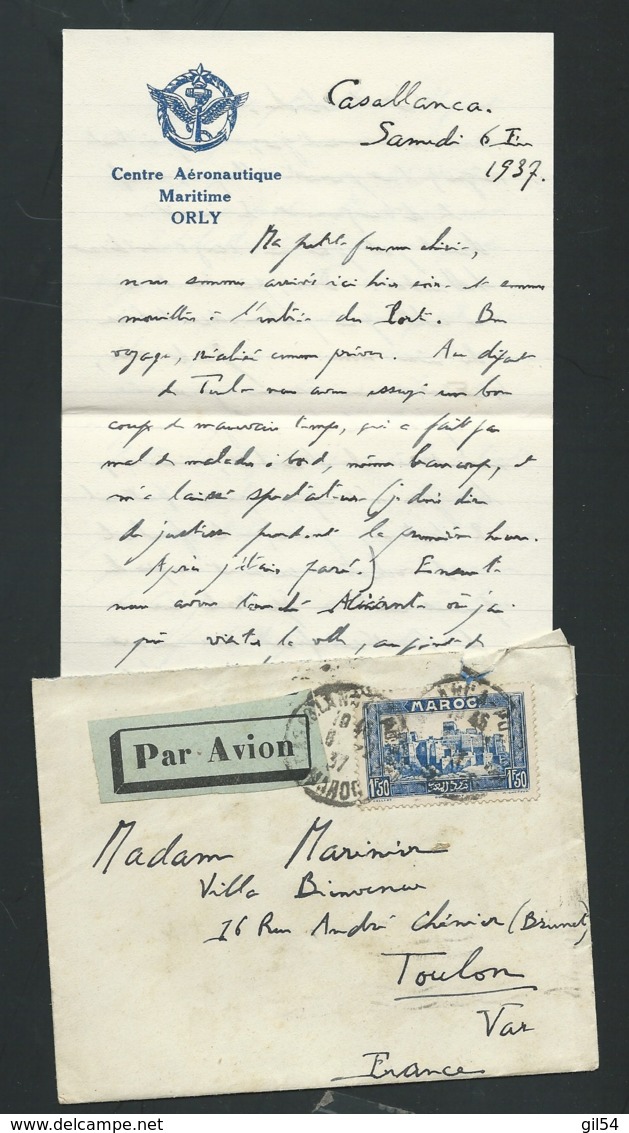 Centre Aéronautique
Maritime
ORLY
Casablanca.
Samedi 6
1937.
Ma petite femme chérie,
nous sommes arrivés ici hier soir et sommes
mouillés à l'entrée du Port. Bon
voyage, réalisé comme prévu. Au départ
de Toulon nous avons essuyé un bon
coup de mauvais temps, qui a fait pas
mal de malades à bord, même beaucoup, et
m'a laissé spectateur (je dois dire
de justesse pendant la première heure.
Après j'étais paré.) Ensuite
nous avons touché Alicante où j'ai
pu visiter la ville, au point de
Par Avion
MAROC
1F50
1F50
Madame Marinier
Villa Bienvenue
16 Rue André Chénier (Brunet)
Toulon
Var
France
gil54